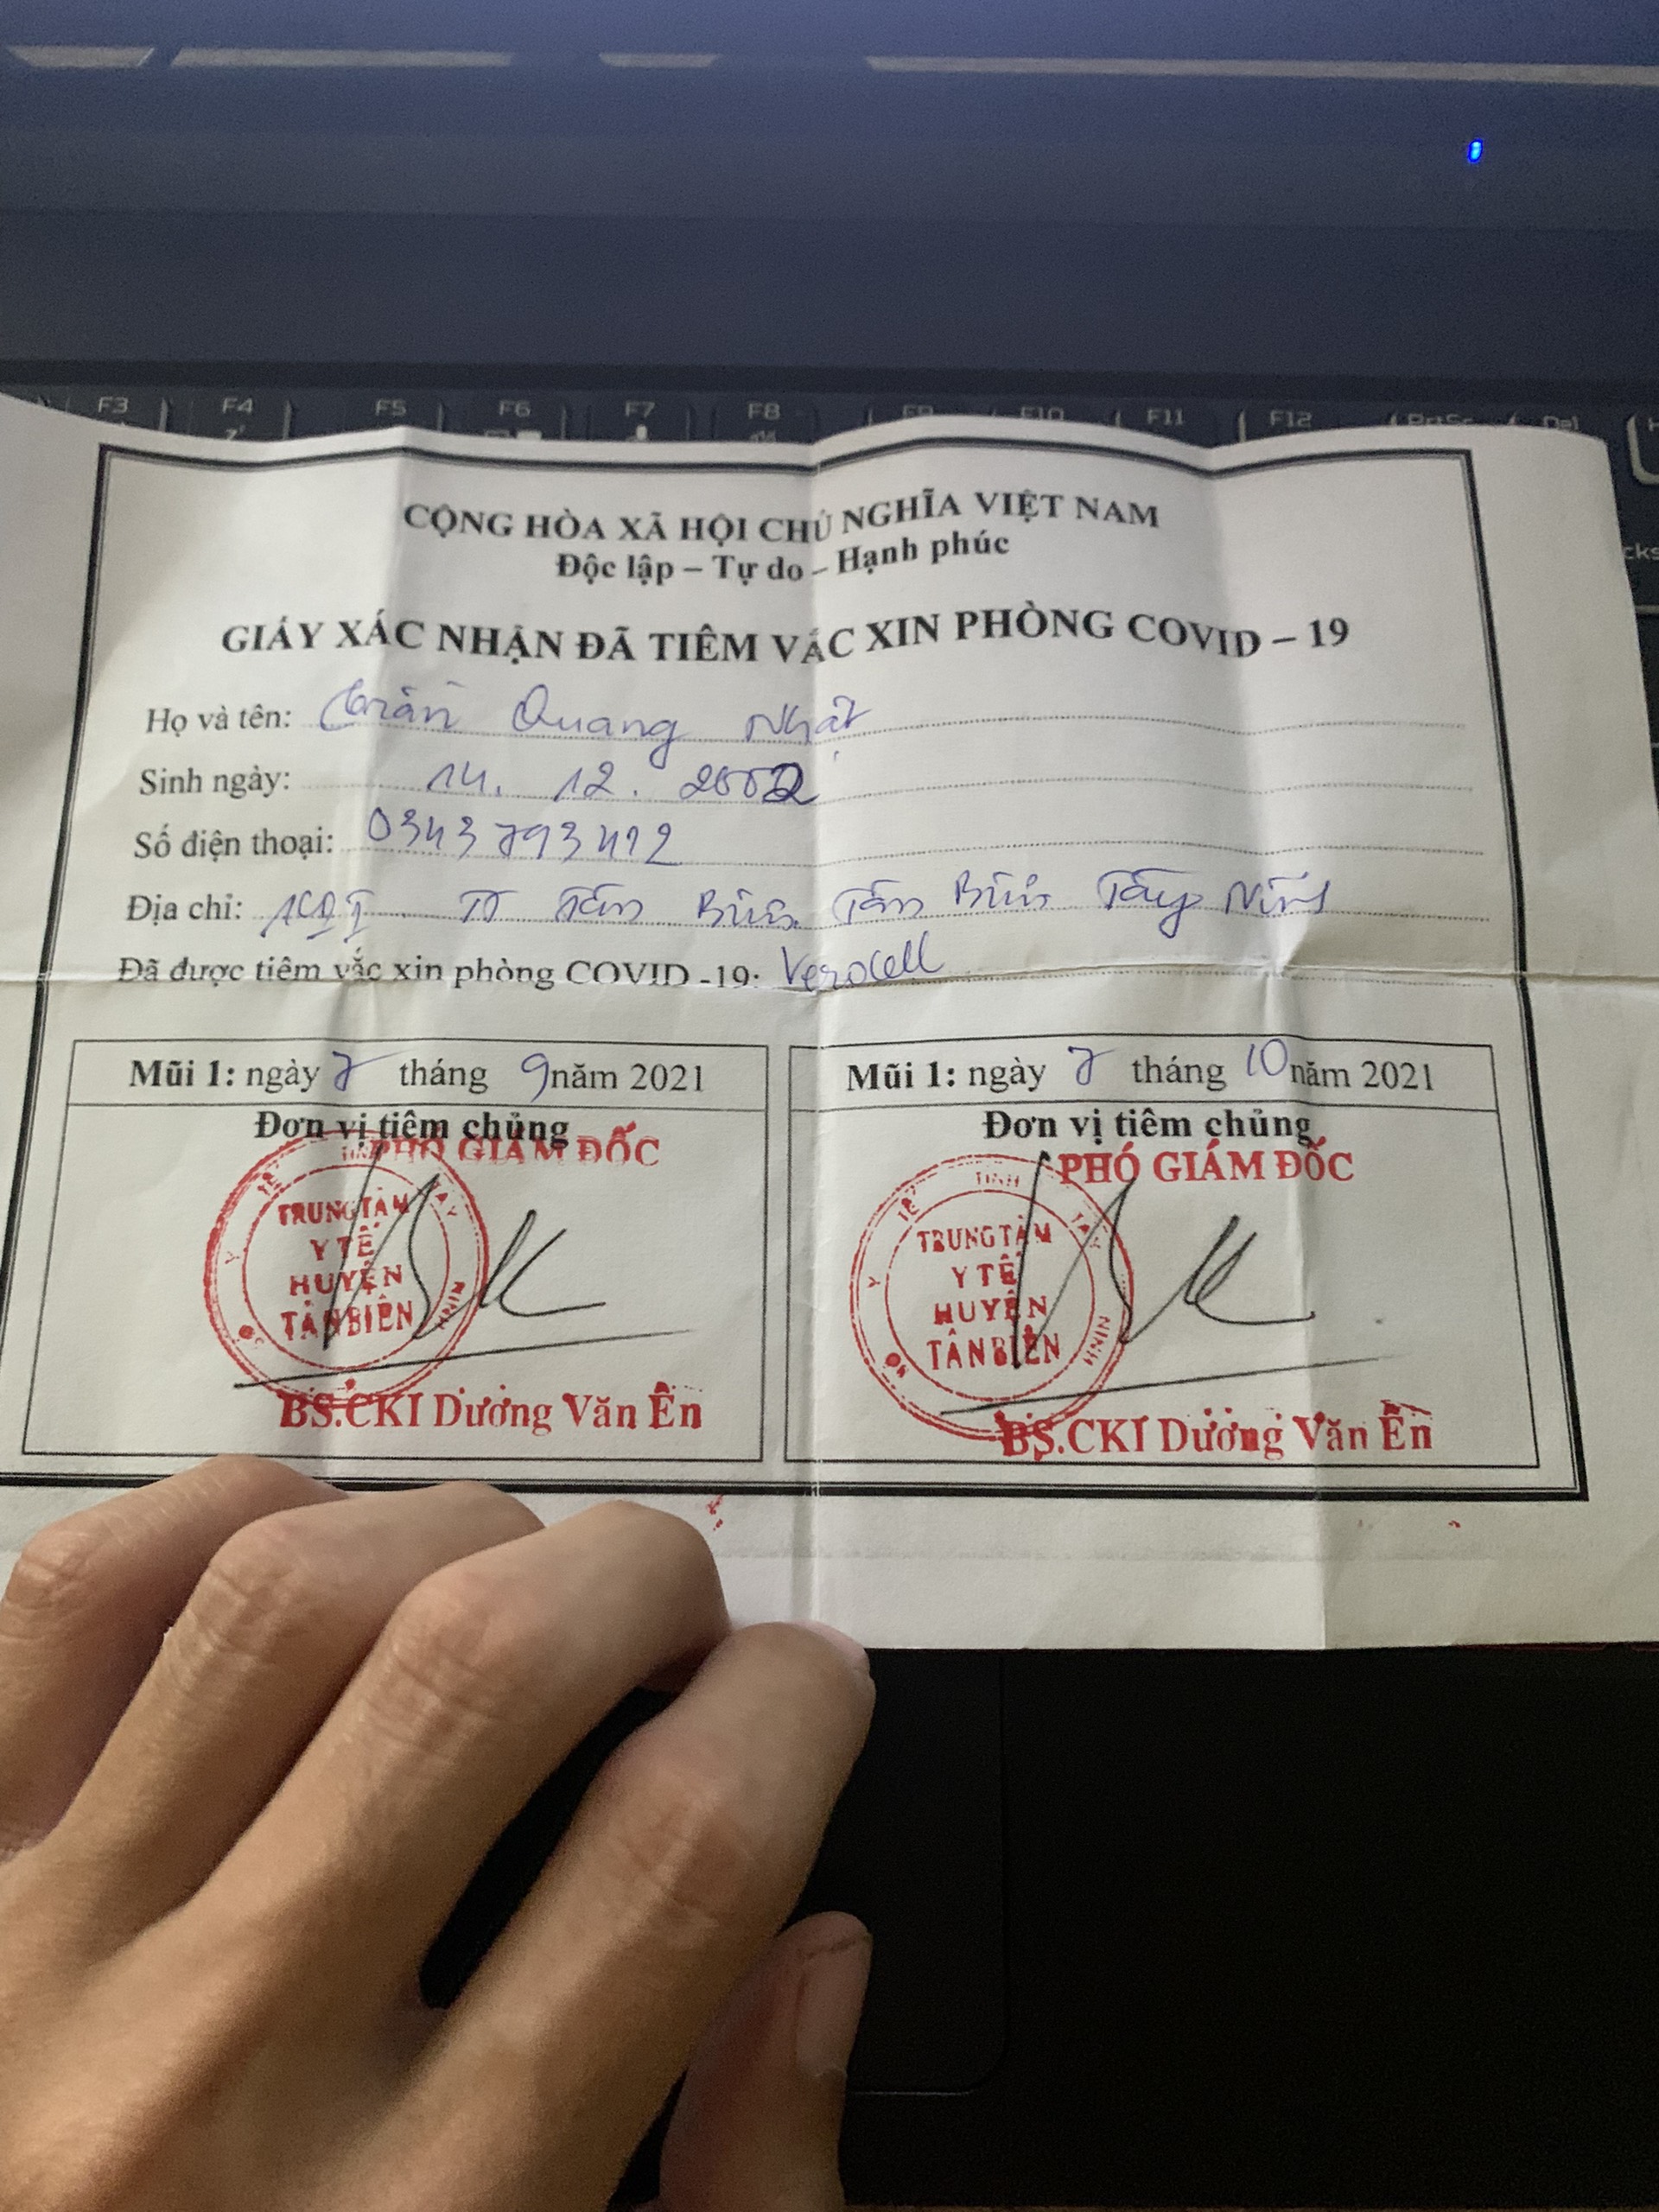 F3 F4 F5 F6 F7 F8 F9 F10 F11 F12 PrtSc Del
CỘNG HÒA XÃ HỘI CHỦ NGHĨA VIỆT NAM
Độc lập – Tự do – Hạnh phúc
GIẤY XÁC NHẬN ĐÃ TIÊM VẮC XIN PHÒNG COVID – 19
Họ và tên: Trần Quang Nhật
Sinh ngày: 14. 12. 2002
Số điện thoại: 0343793412
Địa chỉ: TT Tân Biên Tân Biên Tây Ninh
Đã được tiêm vắc xin phòng COVID -19: Verocell
Mũi 1: ngày 7 tháng 9 năm 2021
Đơn vị tiêm chủng
PHÓ GIÁM ĐỐC
TRUNG TÂM
Y TẾ
HUYỆN
TÂN BIÊN
SỞ Y TẾ TỈNH TÂY NINH
BS.CKI Dương Văn Ên
Mũi 1: ngày 7 tháng 10 năm 2021
Đơn vị tiêm chủng
PHÓ GIÁM ĐỐC
TRUNG TÂM
Y TẾ
HUYỆN
TÂN BIÊN
SỞ Y TẾ TỈNH TÂY NINH
BS.CKI Dương Văn Ên